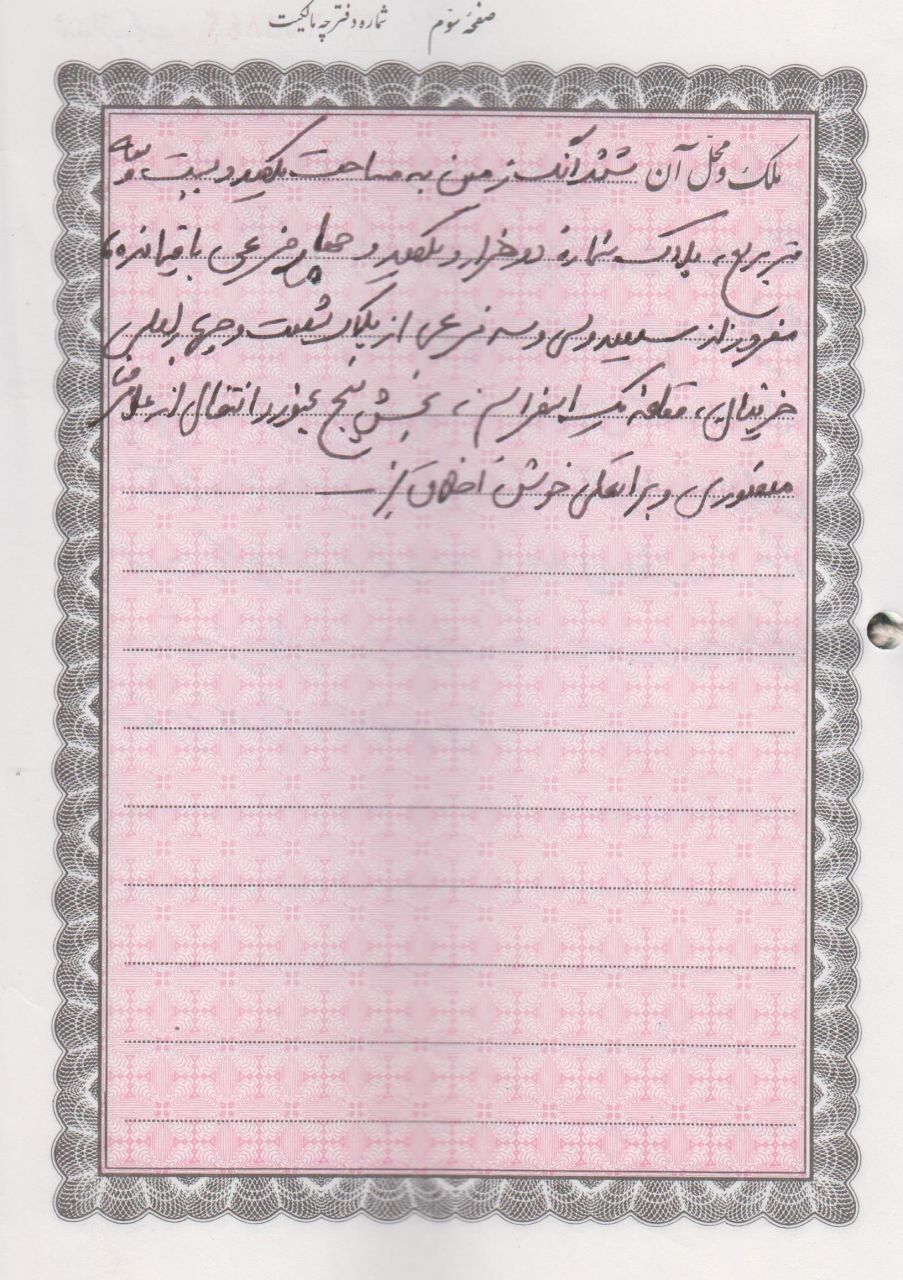 صفحهٔ سوّم شماره دفترچه مالکیت
ملک و محل آن ششدانگ زمین به مساحت یکصد و بیست و سه
متر مربع، پلاک شماره دو هزار و یکصد و چهار فرعی باقیمانده
مفروز از سیصد و سی و سه فرعی از پلاک شصت و چهار اصلی
قطعه یک اسفراین، بخش پنج بجنورد انتقال از غلامرضا
منصوری و براتعلی خوش اخلاق